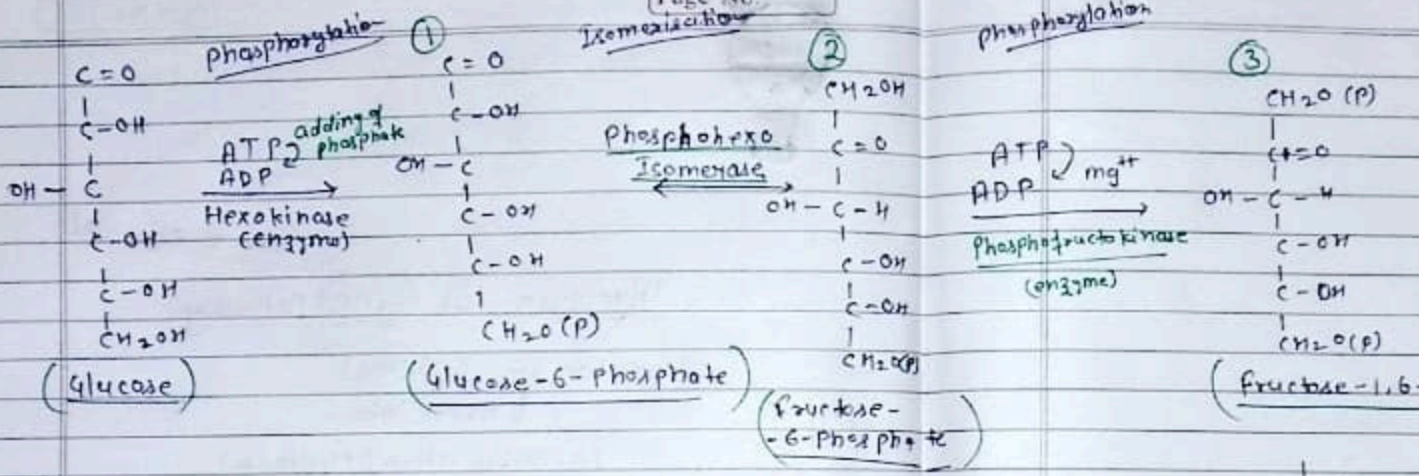 Phosphorylation
C = O
C-OH
OH - C
C-OH
C-OH
CH2OH
(Glucose)
ATP
ADP
adding of
phosphate
Hexokinase
(enzyme)
①
C = O
C-OH
OH - C
C-OH
C-OH
CH2O (P)
(Glucose-6-Phosphate)
Isomerisation
Phosphohexo
Isomerase
②
CH2OH
C = O
OH - C - H
C-OH
C-OH
CH2O(P)
(fructose-
-6-Phosphate)
Phosphorylation
ATP
ADP
mg++
Phosphofructokinase
(enzyme)
③
CH2O (P)
C=O
OH - C - H
C-OH
C-OH
CH2O(P)
(fructose-1,6-